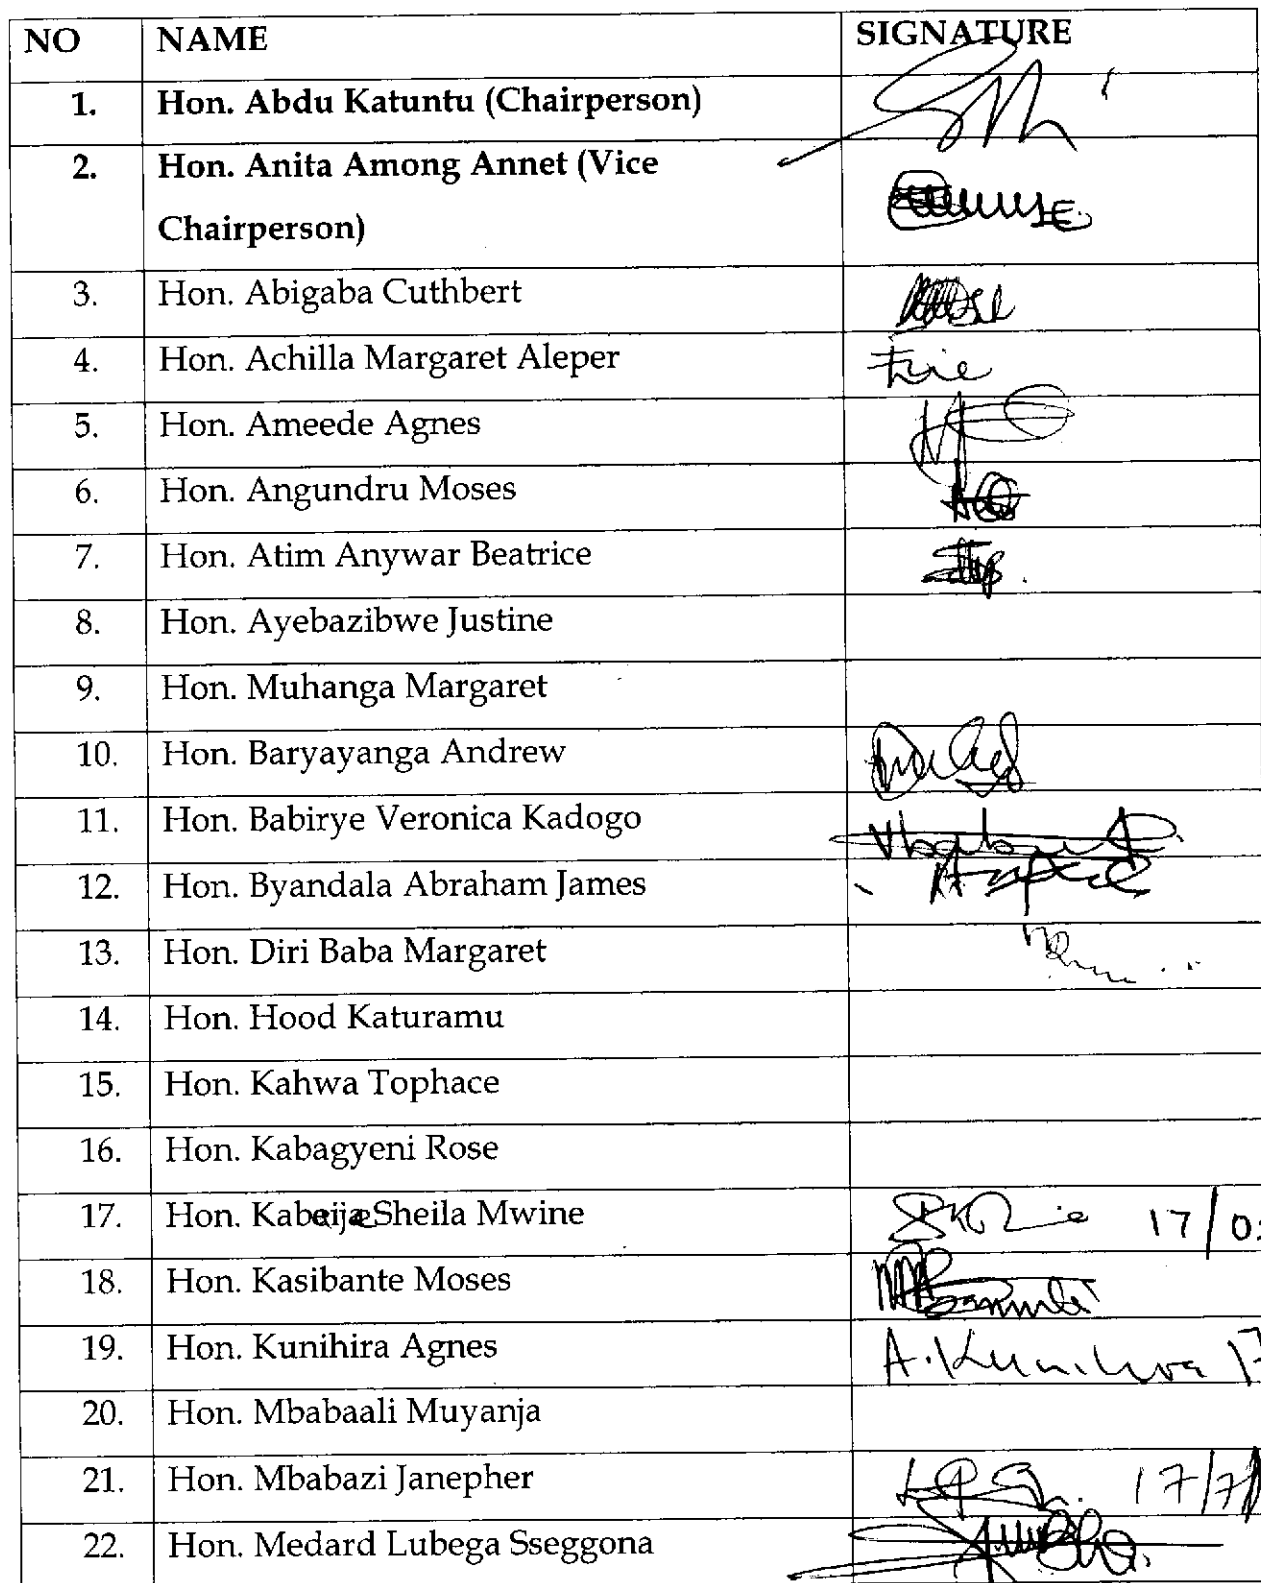 NO NAME SIGNATURE
1. Hon. Abdu Katuntu (Chairperson)
2. Hon. Anita Among Annet (Vice
Chairperson)
3. Hon. Abigaba Cuthbert
4. Hon. Achilla Margaret Aleper
5. Hon. Ameede Agnes
6. Hon. Angundru Moses
7. Hon. Atim Anywar Beatrice
8. Hon. Ayebazibwe Justine
9. Hon. Muhanga Margaret
10. Hon. Baryayanga Andrew
11. Hon. Babirye Veronica Kadogo
12. Hon. Byandala Abraham James
13. Hon. Diri Baba Margaret
14. Hon. Hood Katuramu
15. Hon. Kahwa Tophace
16. Hon. Kabagyeni Rose
17. Hon. Sheila Mwine 17/0
18. Hon. Kasibante Moses
19. Hon. Kunihira Agnes A. Kunihira 17
20. Hon. Mbabaali Muyanja
21. Hon. Mbabazi Janepher 17/7
22. Hon. Medard Lubega Sseggona